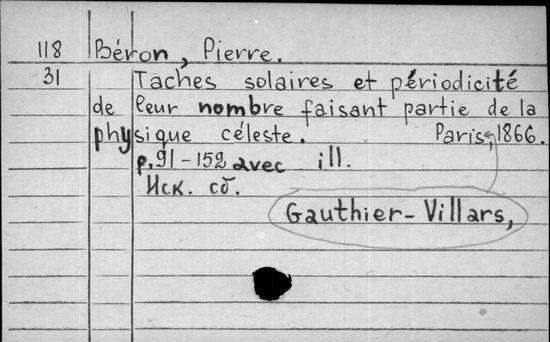 118 Béron, Pierre.
31 Taches solaires et périodicité
de leur nombre faisant partie de la
physique céleste. Paris, 1866.
p. 91-152 avec ill.
Иск. сб.
Gauthier-Villars,